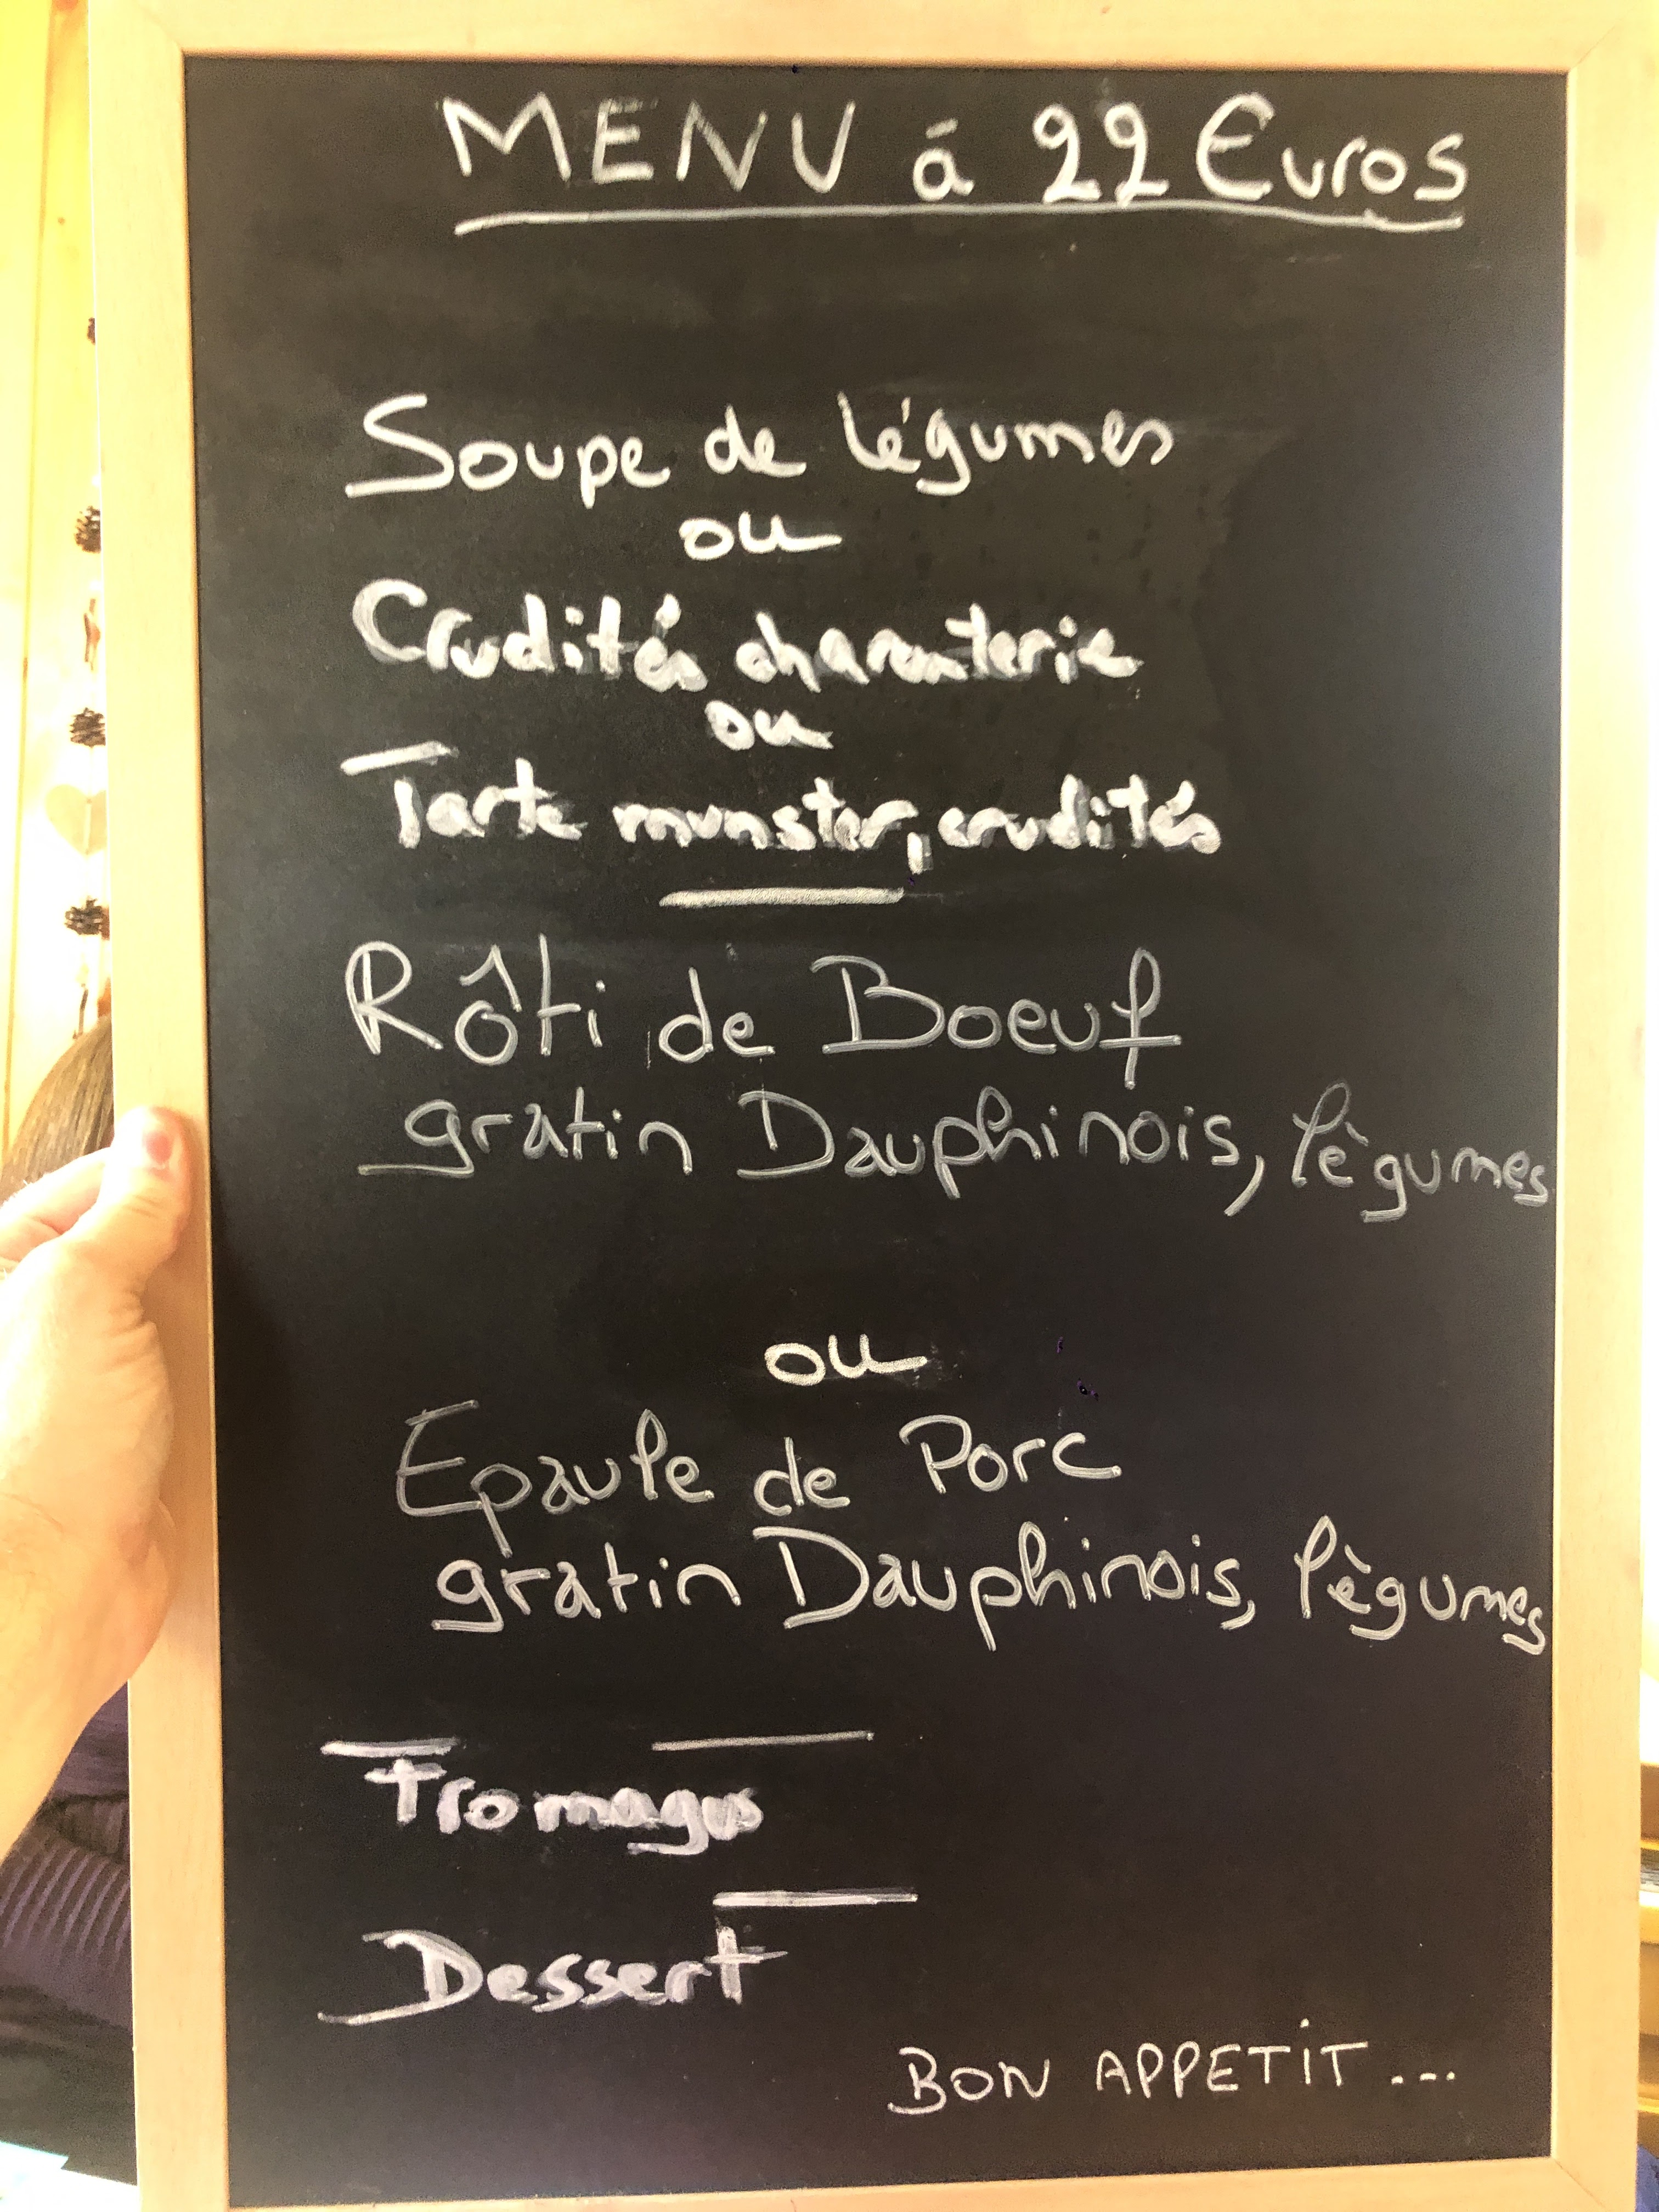 MENU á 22 Euros
Soupe de légumes
ou
Crudités charcuterie
ou
Tarte munster, crudités
Rôti de Boeuf
gratin Dauphinois, lègumes
ou
Epaule de Porc
gratin Dauphinois, lègumes
Fromages
Dessert
BON APPETIT...